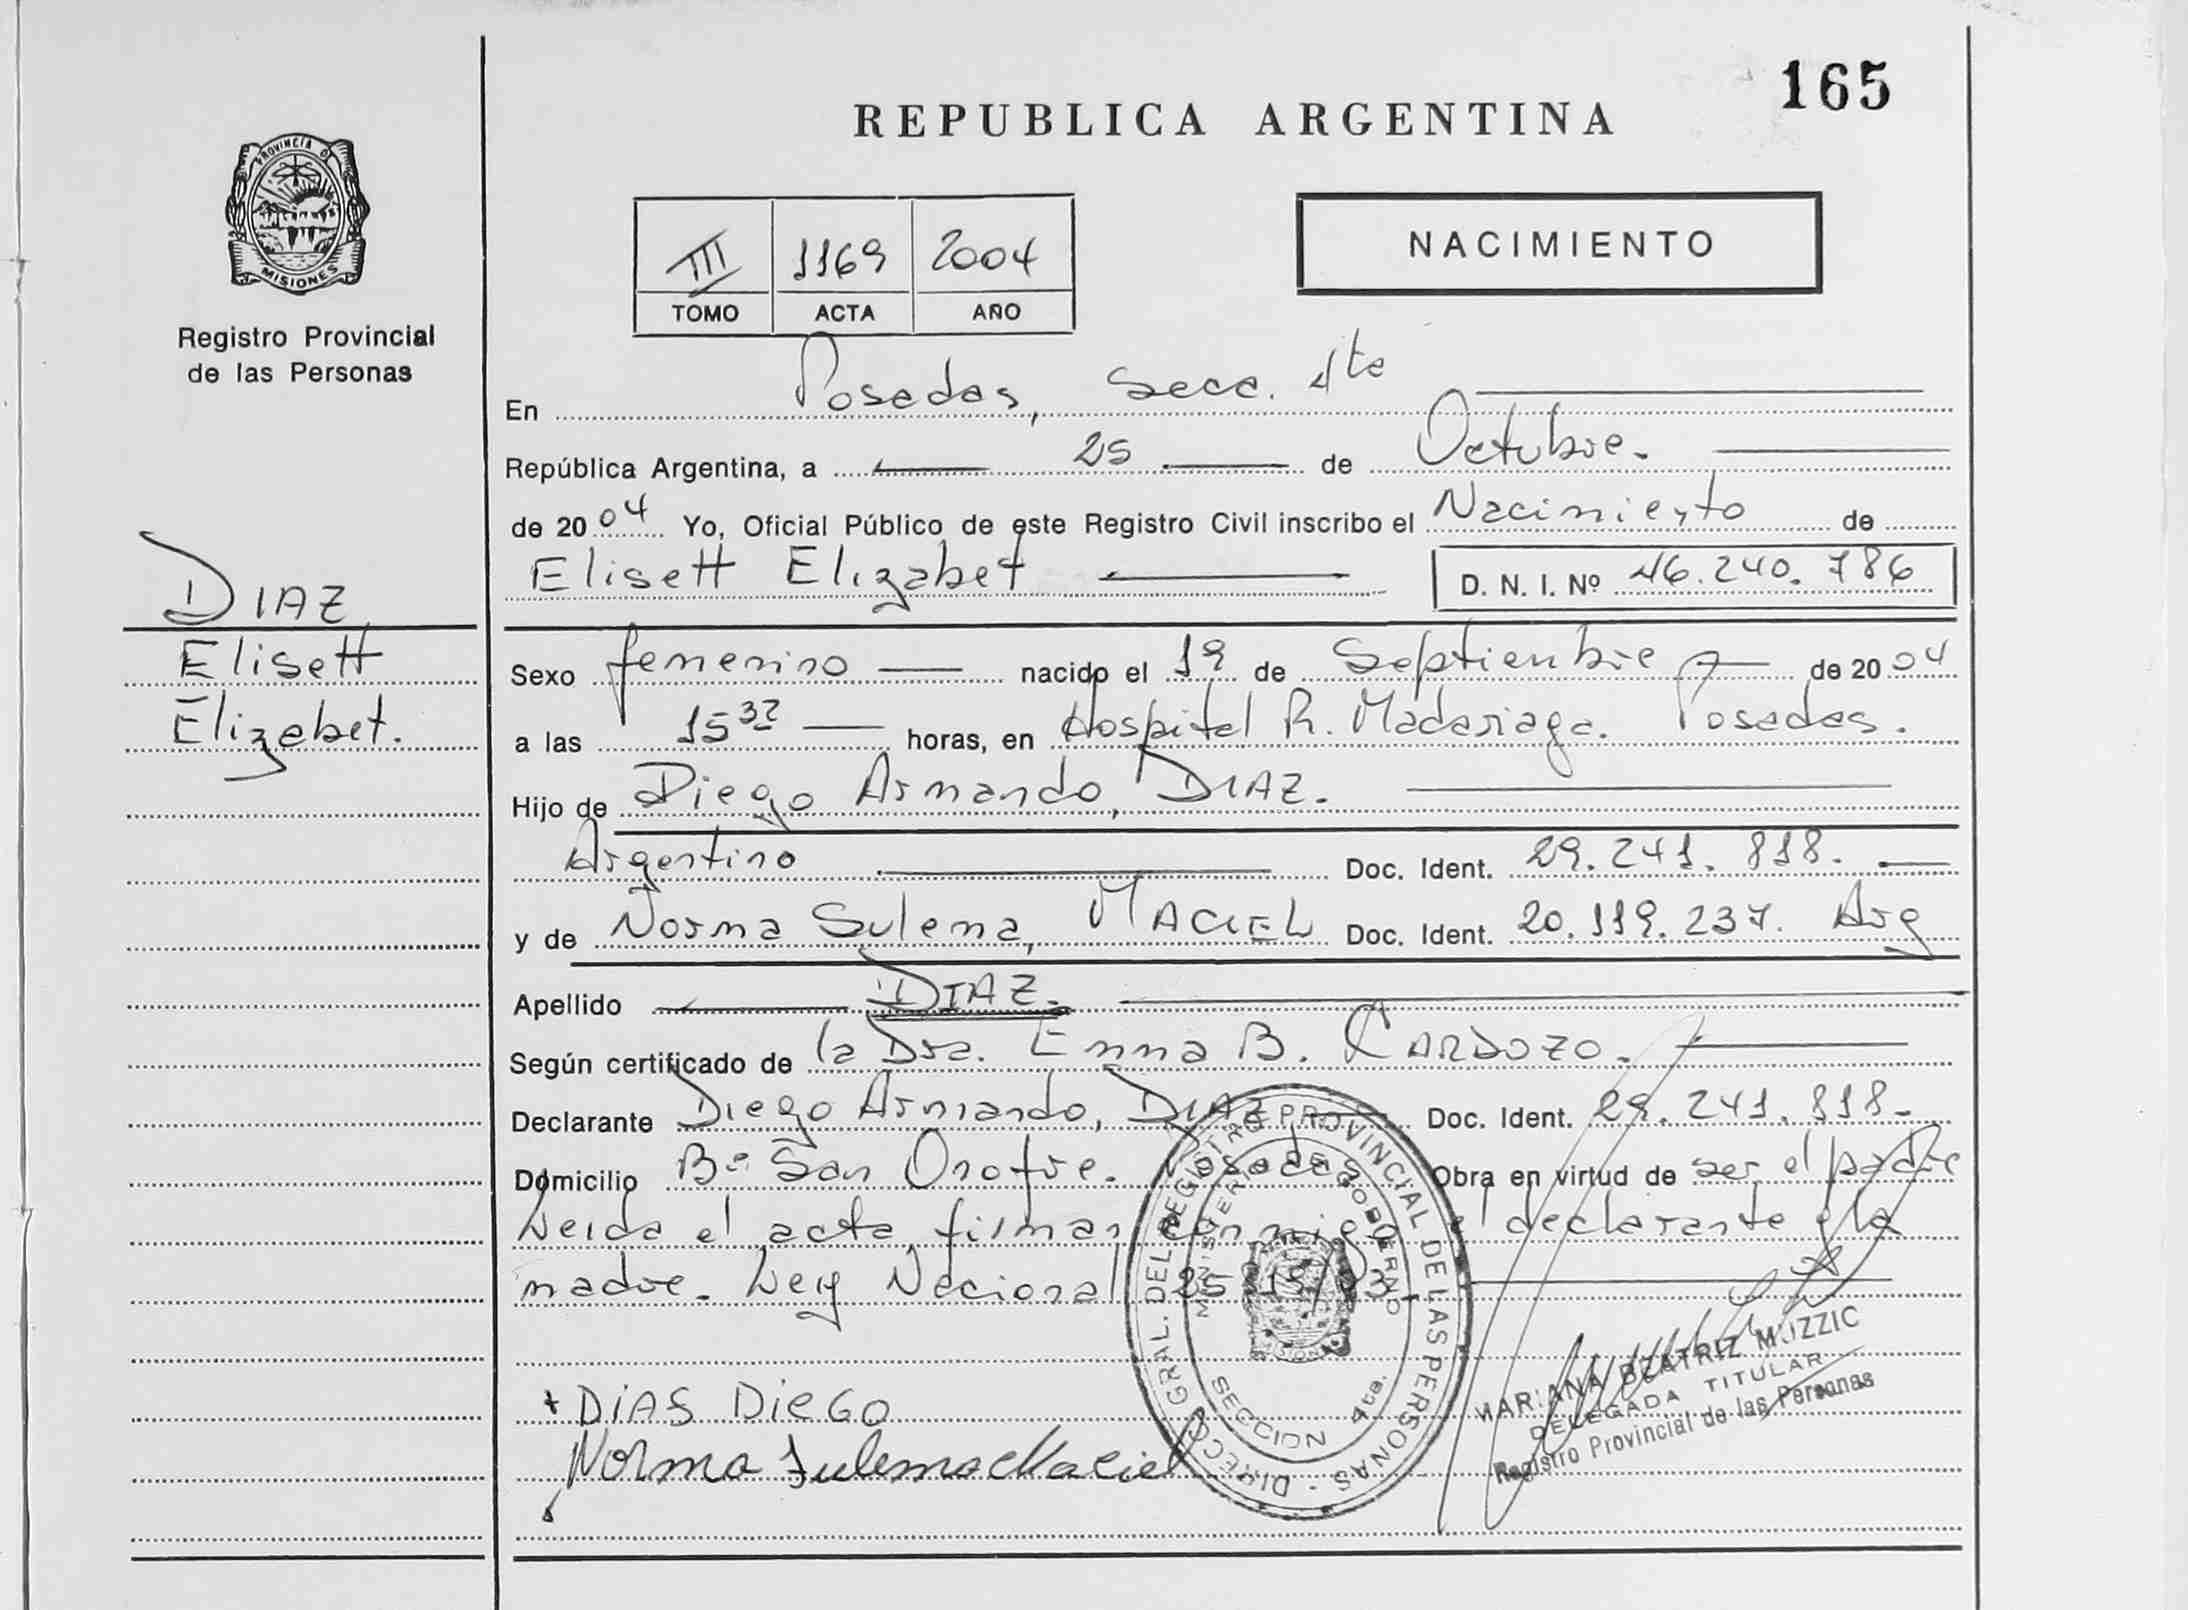 165
REPUBLICA ARGENTINA
PROVINCIA D
MISIONES
Registro Provincial
de las Personas
III 1169 2004
TOMO ACTA AÑO
NACIMIENTO
En Posadas, Secc. 4ta
República Argentina, a 25 de Octubre.
de 2004 Yo, Oficial Público de este Registro Civil inscribo el Nacimiento de
Elisett Elizabet D. N. I. Nº 46.240.786
DIAZ
Elisett
Elizabet.
Sexo femenino nacido el 19 de Septiembre de 2004
a las 15 32 horas, en Hospital R. Madariaga. Posadas.
Hijo de Diego Armando, DIAZ.
Argentino Doc. Ident. 29.241.818.
y de Norma Sulema, MACIEL Doc. Ident. 20.119.237. Arg
Apellido DIAZ.
Según certificado de la Dra. Emma B. CARDOZO.
Declarante Diego Armando, DIAZ Doc. Ident. 29.241.818.
Domicilio Bº San Onofre. Posadas Obra en virtud de ser el padre
Leida el acta, firman conmigo el declarante y la
madre. Ley Nacional
DIAS DIEGO
Norma Sulema Maciel
DIRECC. GRAL. DEL REGISTRO PROVINCIAL DE LAS PERSONAS
MINISTERIO DE GOBIERNO
SECCION 4ta.
MARIANA BEATRIZ MUZZIC
DELEGADA TITULAR
Registro Provincial de las Personas